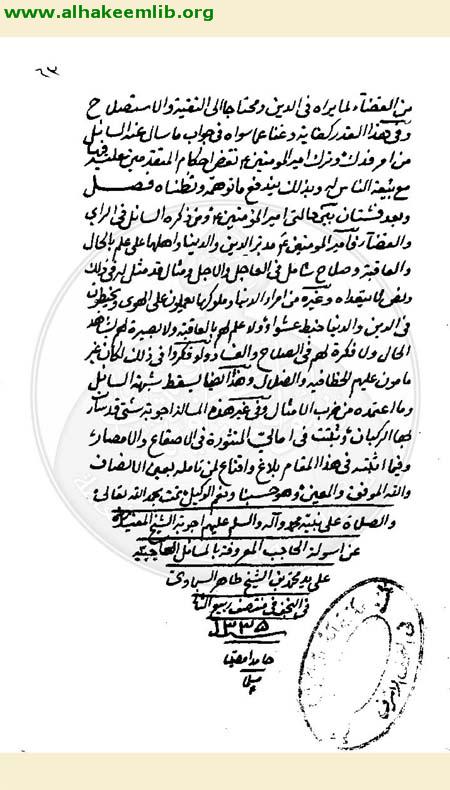 www.alhakeemlib.org
٦٣
من القضاء لما يراه فى الدين ومحتاجا الى التقية والاستصلاح
وفى هذا القدر كفاية وغنا عما سواه فى جواب ما سال عنه السائل
من امر فدك وترك امير المؤمنين نقض احكام المتقدمين عليه فيها
مع بيعة الناس له وبذلك يندفع ما توهمه وظناه فصــل
وبعد فشتان بين حالتى امير المؤمنين ومن ذكره السائل فى الراى
والقضاء فامير المؤمنين مدبر الدين والدنيا واهلها على علم بالحال
والعاقبة وصلاح شامل فى العاجل والاجل ومثال قد مثل له فى ذلك
وغيره من امراء الدنيا وملوكها يعملون على الهوى ويخبطون
فى الدين والدنيا خبط عشواء ولا علم لهم بالعاقبة ولا بصيرة لهم بشاهد
الحال ولا فكرة لهم فى الصلاح والفساد ولو فكروا فى ذلك لكان غير
مامون عليهم الخطا فيه والضلال وهذا ايضا يسقط شبهة السائل
وما اعتمده من ضرب الامثال وفى غير هذه المسالة اجوبة شتى قد سار
بها الركبان وثبتت فى امالى المنثورة فى الاصقاع والامصار
وفيما اثبته فى هذا المقام بلاغ واقناع لمن تامله بعين الانصاف
والله الموفق والمعين وهو حسبنا ونعم الوكيل تمت بحمد الله تعالى
والصلاة على نبيه محمد وآله والسلم عليهم اجوبة الشيخ المفيد
عن اسولة الحاجب المعروفة بالمسائل الحاجبية
على يد محمد بن الشيخ طاهر السماوى
فى النجف فى منتصف ربيع الثا
سنة ١٣٣٥
حامدا مصليا
مسلما